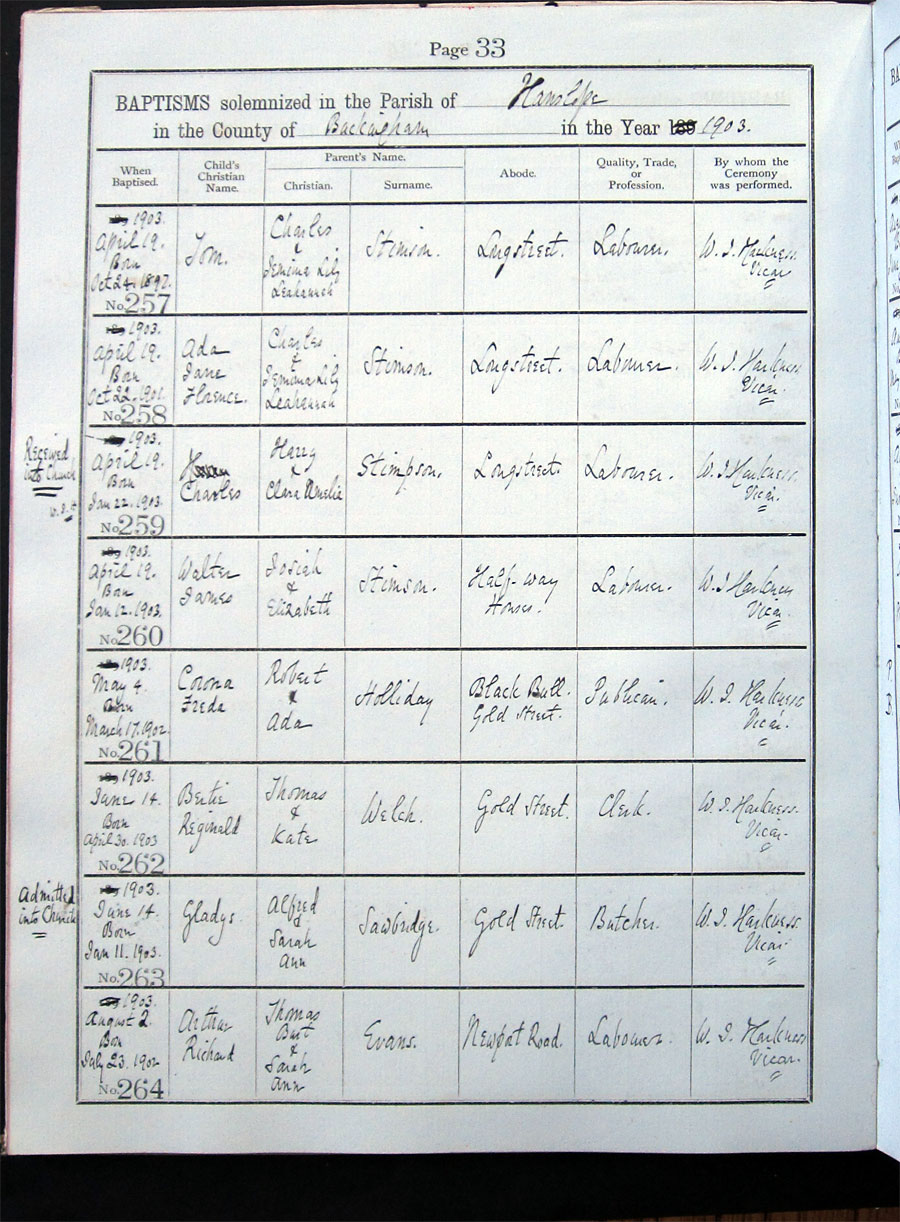 Page 33
BAPTISMS solemnized in the Parish of Hanslope
in the County of Buckingham in the Year 189 1903.
When Baptised. Child's Christian Name. Parent's Name. Christian. Surname. Abode. Quality, Trade, or Profession. By whom the Ceremony was performed.
1903.
April 19.
Born
Oct 24. 1897.
No. 257
Tom.
Charles
&
Jemima Lily
Leahannah
Stimson.
Longstreet.
Labourer.
W. J. Harkness
Vicar
1903.
April 19.
Born
Oct 22. 1901.
No. 258
Ada
Jane
Florence.
Charles
&
Jemima Lily
Leahannah
Stimson.
Longstreet.
Labourer.
W. J. Harkness
Vicar.
Received
into Church
1903.
April 19.
Born
Jan 22. 1903.
No. 259
Charles
Harry
&
Clara Amelia
Stimpson.
Longstreet.
Labourer.
W. J. Harkness.
Vicar.
1903.
April 19.
Born
Jan 12. 1903.
No. 260
Walter
James
Josiah
&
Elizabeth
Stimson.
Half-way
Houses.
Labourer.
W. J. Harkness
Vicar.
1903.
May 4.
Born
March 17. 1902.
No. 261
Corona
Freda
Robert
&
Ada
Holliday
Black Bull.
Gold Street.
Publican.
W. J. Harkness
Vicar.
1903.
June 14.
Born
April 30. 1903
No. 262
Bertie
Reginald
Thomas
&
Kate
Welch.
Gold Street.
Clerk.
W. J. Harkness.
Vicar.
Admitted
into Church
1903.
June 14.
Born
Jan 11. 1903.
No. 263
Gladys.
Alfred
&
Sarah
Ann
Sawbridge.
Gold Street.
Butcher.
W. J. Harkness.
Vicar.
1903.
August 2.
Born
July 23. 1902
No. 264
Arthur
Richard
Thomas
Burt
&
Sarah
Ann
Evans.
Newport Road.
Labourer.
W. J. Harkness
Vicar.